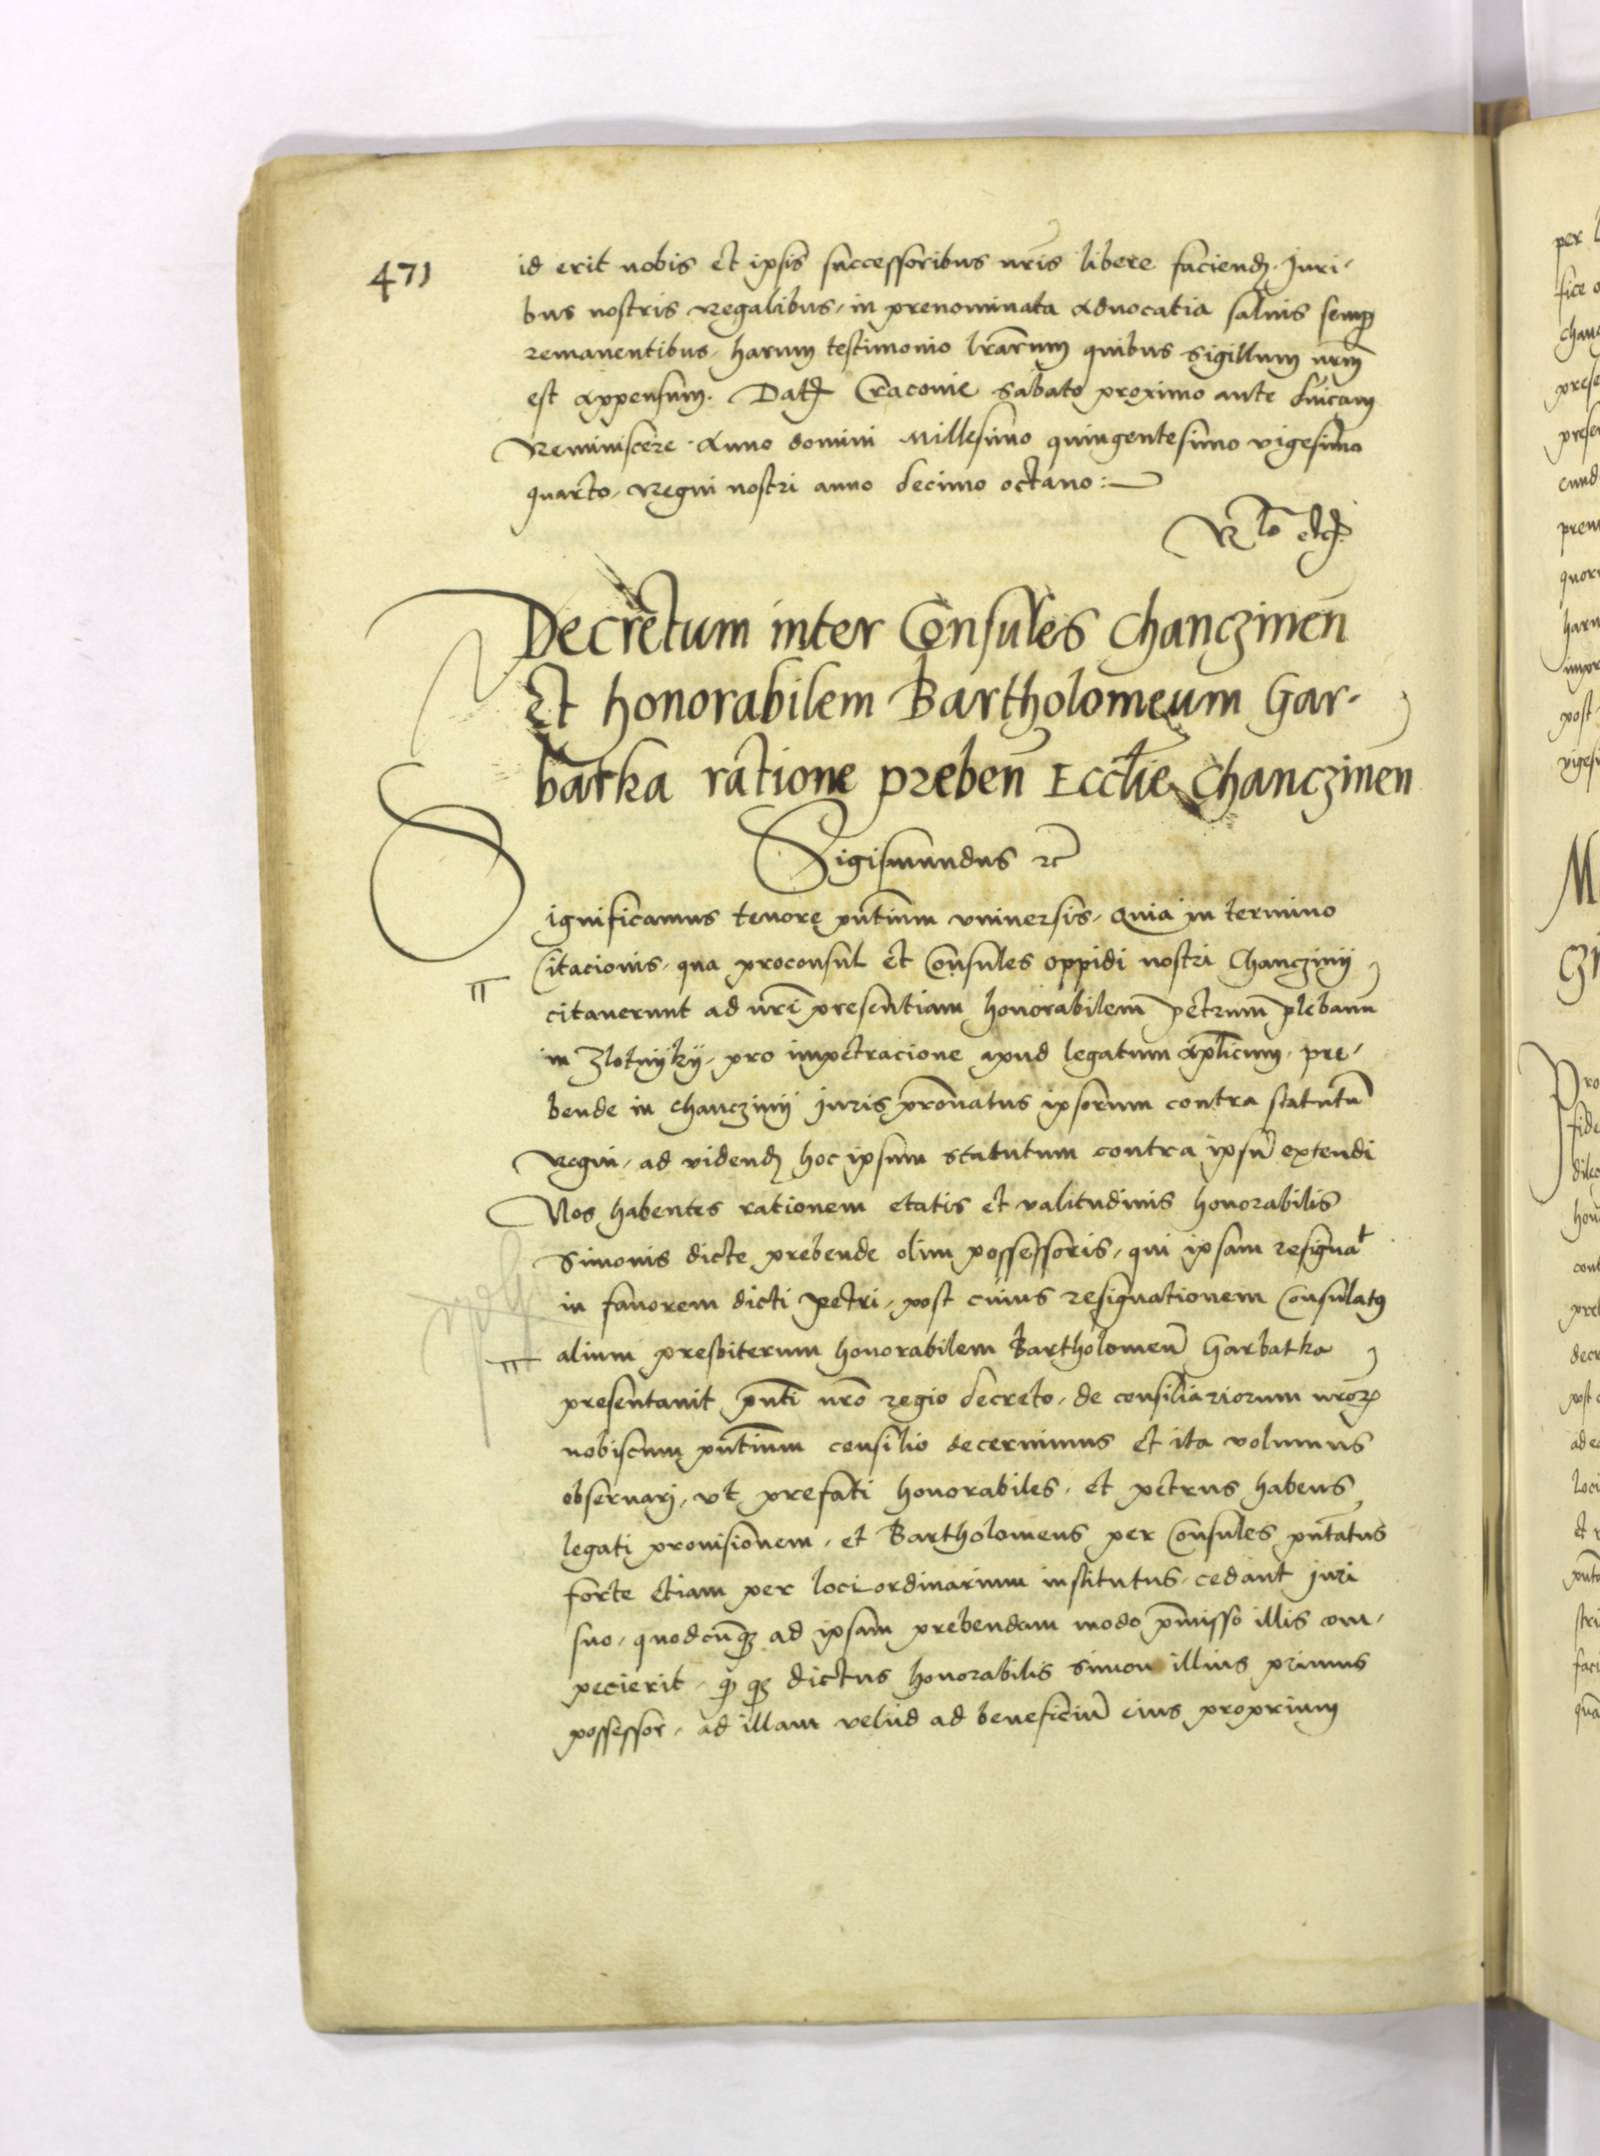 471
id erit nobis et ipsis successoribus nr̄is libere faciend. Iuri-
bus nostris Regalibus, in prenominata advocatia salvis semp
remanentibus, harum testimonio lr̄arum quibus Sigillum nrm̄
est appensum. Dat Cracovie Sabato proximo ante dnicam
Reminiscere Anno domini Millesimo quingentesimo vigesimo
quarto, Regni nostri anno decimo octavo:
Rlō etc
Decretum inter Consules Chanczinen
Et honorabilem Bartholomeum Gar-
batka ratione preben Ecclīe Chanczinen
Sigismundus etc
Significamus tenore pn̄tium universis, Quia in termino
Citacionis, qua proconsul et Consules oppidi nostri Chanczinÿ
citaverunt ad nrī presentiam honorabilem petrum plebanū
in Zlotnÿkÿ, pro impetracione apud legatum aplicum, pre-
bende in Chanczinÿ Iuris pron̄atus ipsorum contra statutū
Regni, ad vidend hoc ipsum Statutum contra ipsū extendi
Nos habentes rationem etatis et valitudinis honorabilis
Simonis dicte prebende olim possessoris, qui ipsam resignat
in favorem dicti Petri, post cuius resignationem Consulatus
alium presbiterum honorabilem Bartholomeū Garbatka
presentavit pn̄ti nrō regio decreto, de consiliariorum nrōrum
nobiscum pn̄tium consilio decernimus et ita volumus
observari, ut prefati honorabiles, et petrus habens
legati provisionem, et Bartholomeus per Consules pn̄tatus
forte etiam per loci ordinarium institutus, cedant Iuri
suo, quodcūq ad ipsam prebendam modo pmisso illis com-
pecierit, dictus honorabilis Simon illius primus
possessor, ad illam velud ad beneficiū eius proprium